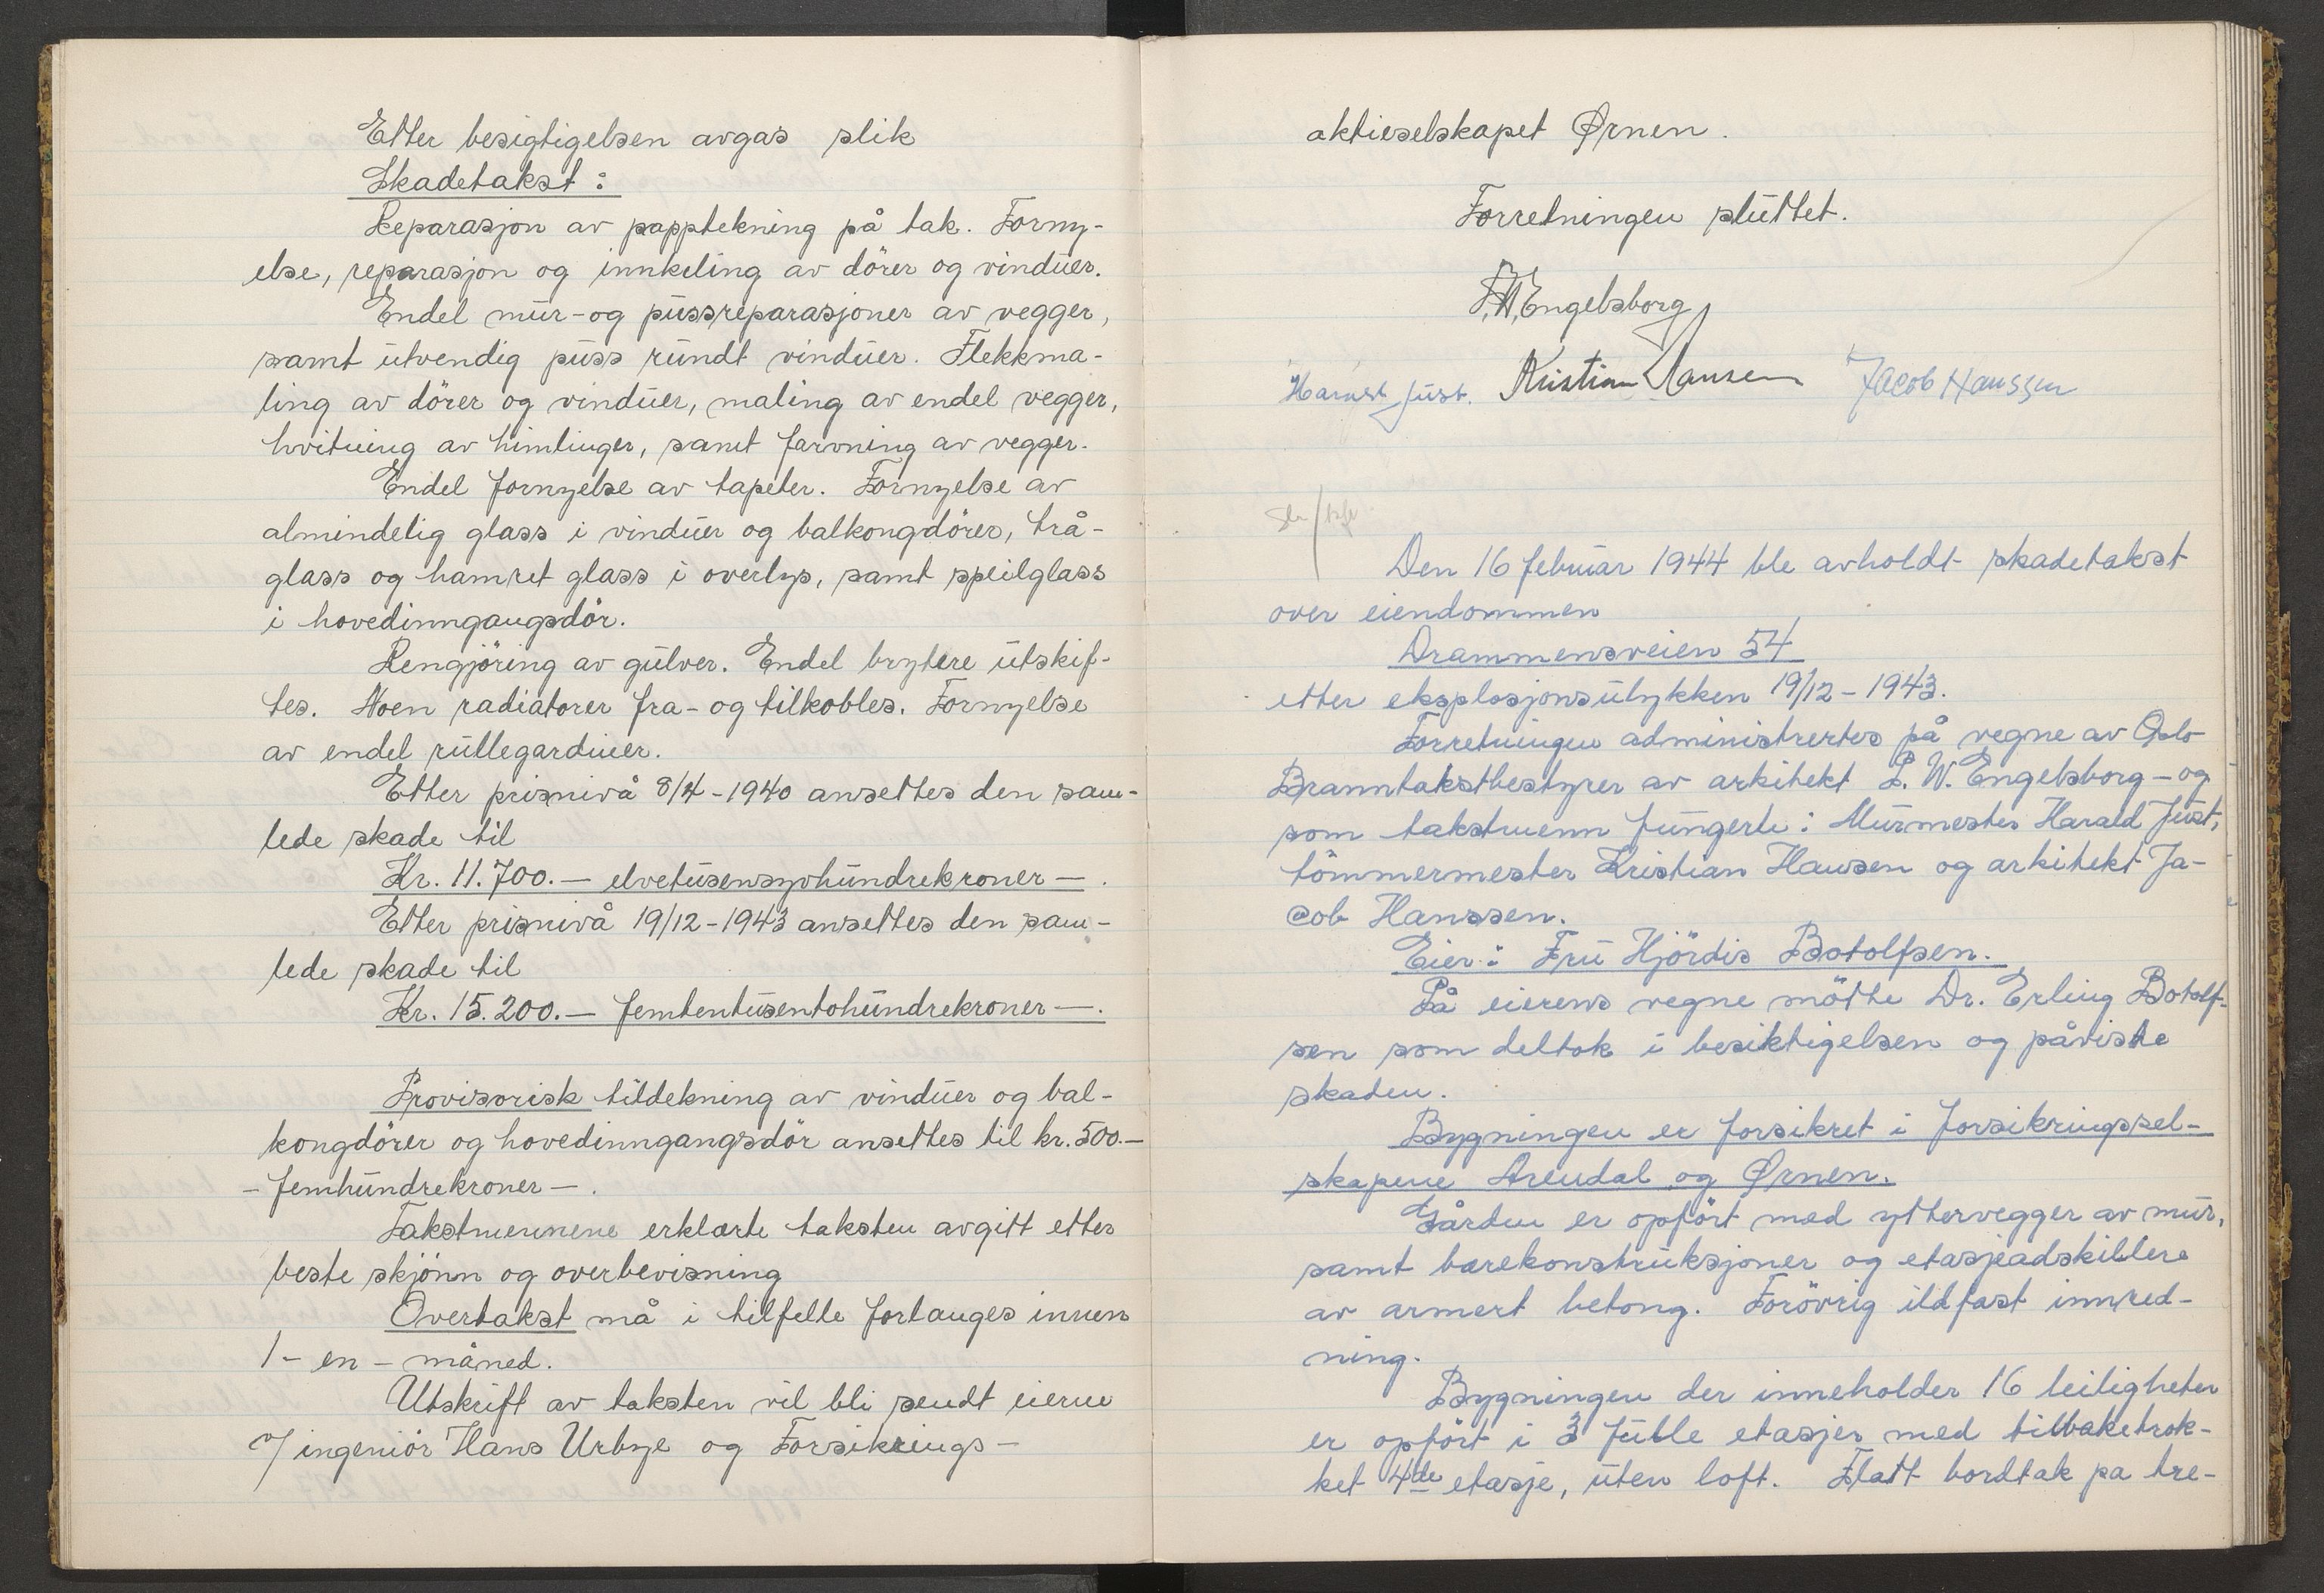 Etter besigtigelsen avgas slik
Skadetakst:
Reparasjon av papptekning på tak. Forny-
else, reparasjon og innkiling av dörer og vinduer.
Endel mur- og pussreparasjoner av vegger,
samt utvendig puss rundt vinduer. Flekkma-
ling av dörer og vinduer, maling av endel vegger,
hvitning av himlinger, samt farvning av vegger.
Endel fornyelse av tapeter. Fornyelse av
almindelig glass i vinduer og balkongdörer, trå-
glass og hamret glass i overlys, samt speilglass
i hovedinngangsdör.
Rengjöring av gulver. Endel brytere utskif-
tes. Noen radiatorer fra- og tilkobles. Fornyelse
av endel rullegardiner.
Etter prisnivå 8/4-1940 ansettes den sam-
lede skade til
Kr. 11.700.— elvetusensyvhundrekroner —.
Etter prisnivå 19/12-1943 ansettes den sam-
lede skade til
Kr. 15.200.— femtentusentohundrekroner —.
Provisorisk tildekning av vinduer og bal-
kongdörer og hovedinngangsdör ansettes til kr. 500.—
- femhundrekroner —.
Takstmennene erklærte taksten avgitt etter
beste skjönn og overbevisning
Overtakst må i tilfelle forlanges innen
1 - en - måned.
Utskrift av taksten vil bli sendt eierne
v/ ingeniör Hans Urbye og Forsikrings-
aktieselskapet Ørnen.
Forretningen sluttet.
P.W. Engelsborg
Harald Just. Kristian Hansen Jacob Hanssen
Den 16 februar 1944 ble avholdt skadetakst
over eiendommen
Drammensveien 54
etter eksplosjonsulykken 19/12-1943.
Forretningen administrertes på vegne av Oslo
Branntakstbestyrer av arkitekt P. W. Engelsborg - og
som takstmenn fungerte: Murmester Harald Just,
tömmermester Kristian Hansen og arkitekt Ja-
cob Hanssen.
Eier: Fru Hjördis Botolfsen.
På eierens vegne mötte Dr. Erling Botolf-
sen som deltok i besiktigelsen og påviste
skaden.
Bygningen er forsikret i forsikringssel-
skapene Arendal og Ørnen.
Gården er opfört med yttervegger av mur,
samt bærekonstruksjoner og etasjeadskillere
av armert betong. Forövrig ildfast innred-
ning.
Bygningen der inneholder 16 leiligheter
er opfört i 3 fulle etasjer med tilbaketrok-
ket 4de etasje, uten loft. Flatt bordtak pa tre-